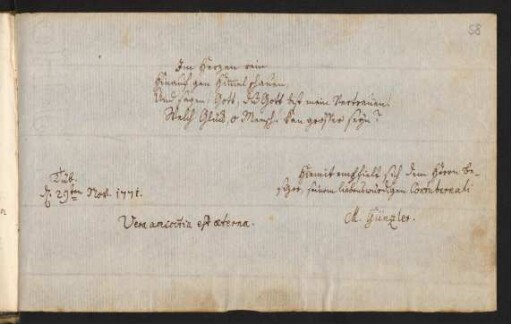 58
Im Herzen rein
Hinauf gen Himmel schauen,
Und sagen: Gott, du Gott bist mein Vertrauen!
Welch Glück, o Mensch, kan grösser seyn?
Tüb.
d. 29ten Nov. 1771.
Vera amicitia est aeterna.
Hiemit empfiehlt sich dem Herrn Be-
sizer, seinem liebenswürdigen Conterneali
M. Günzler.